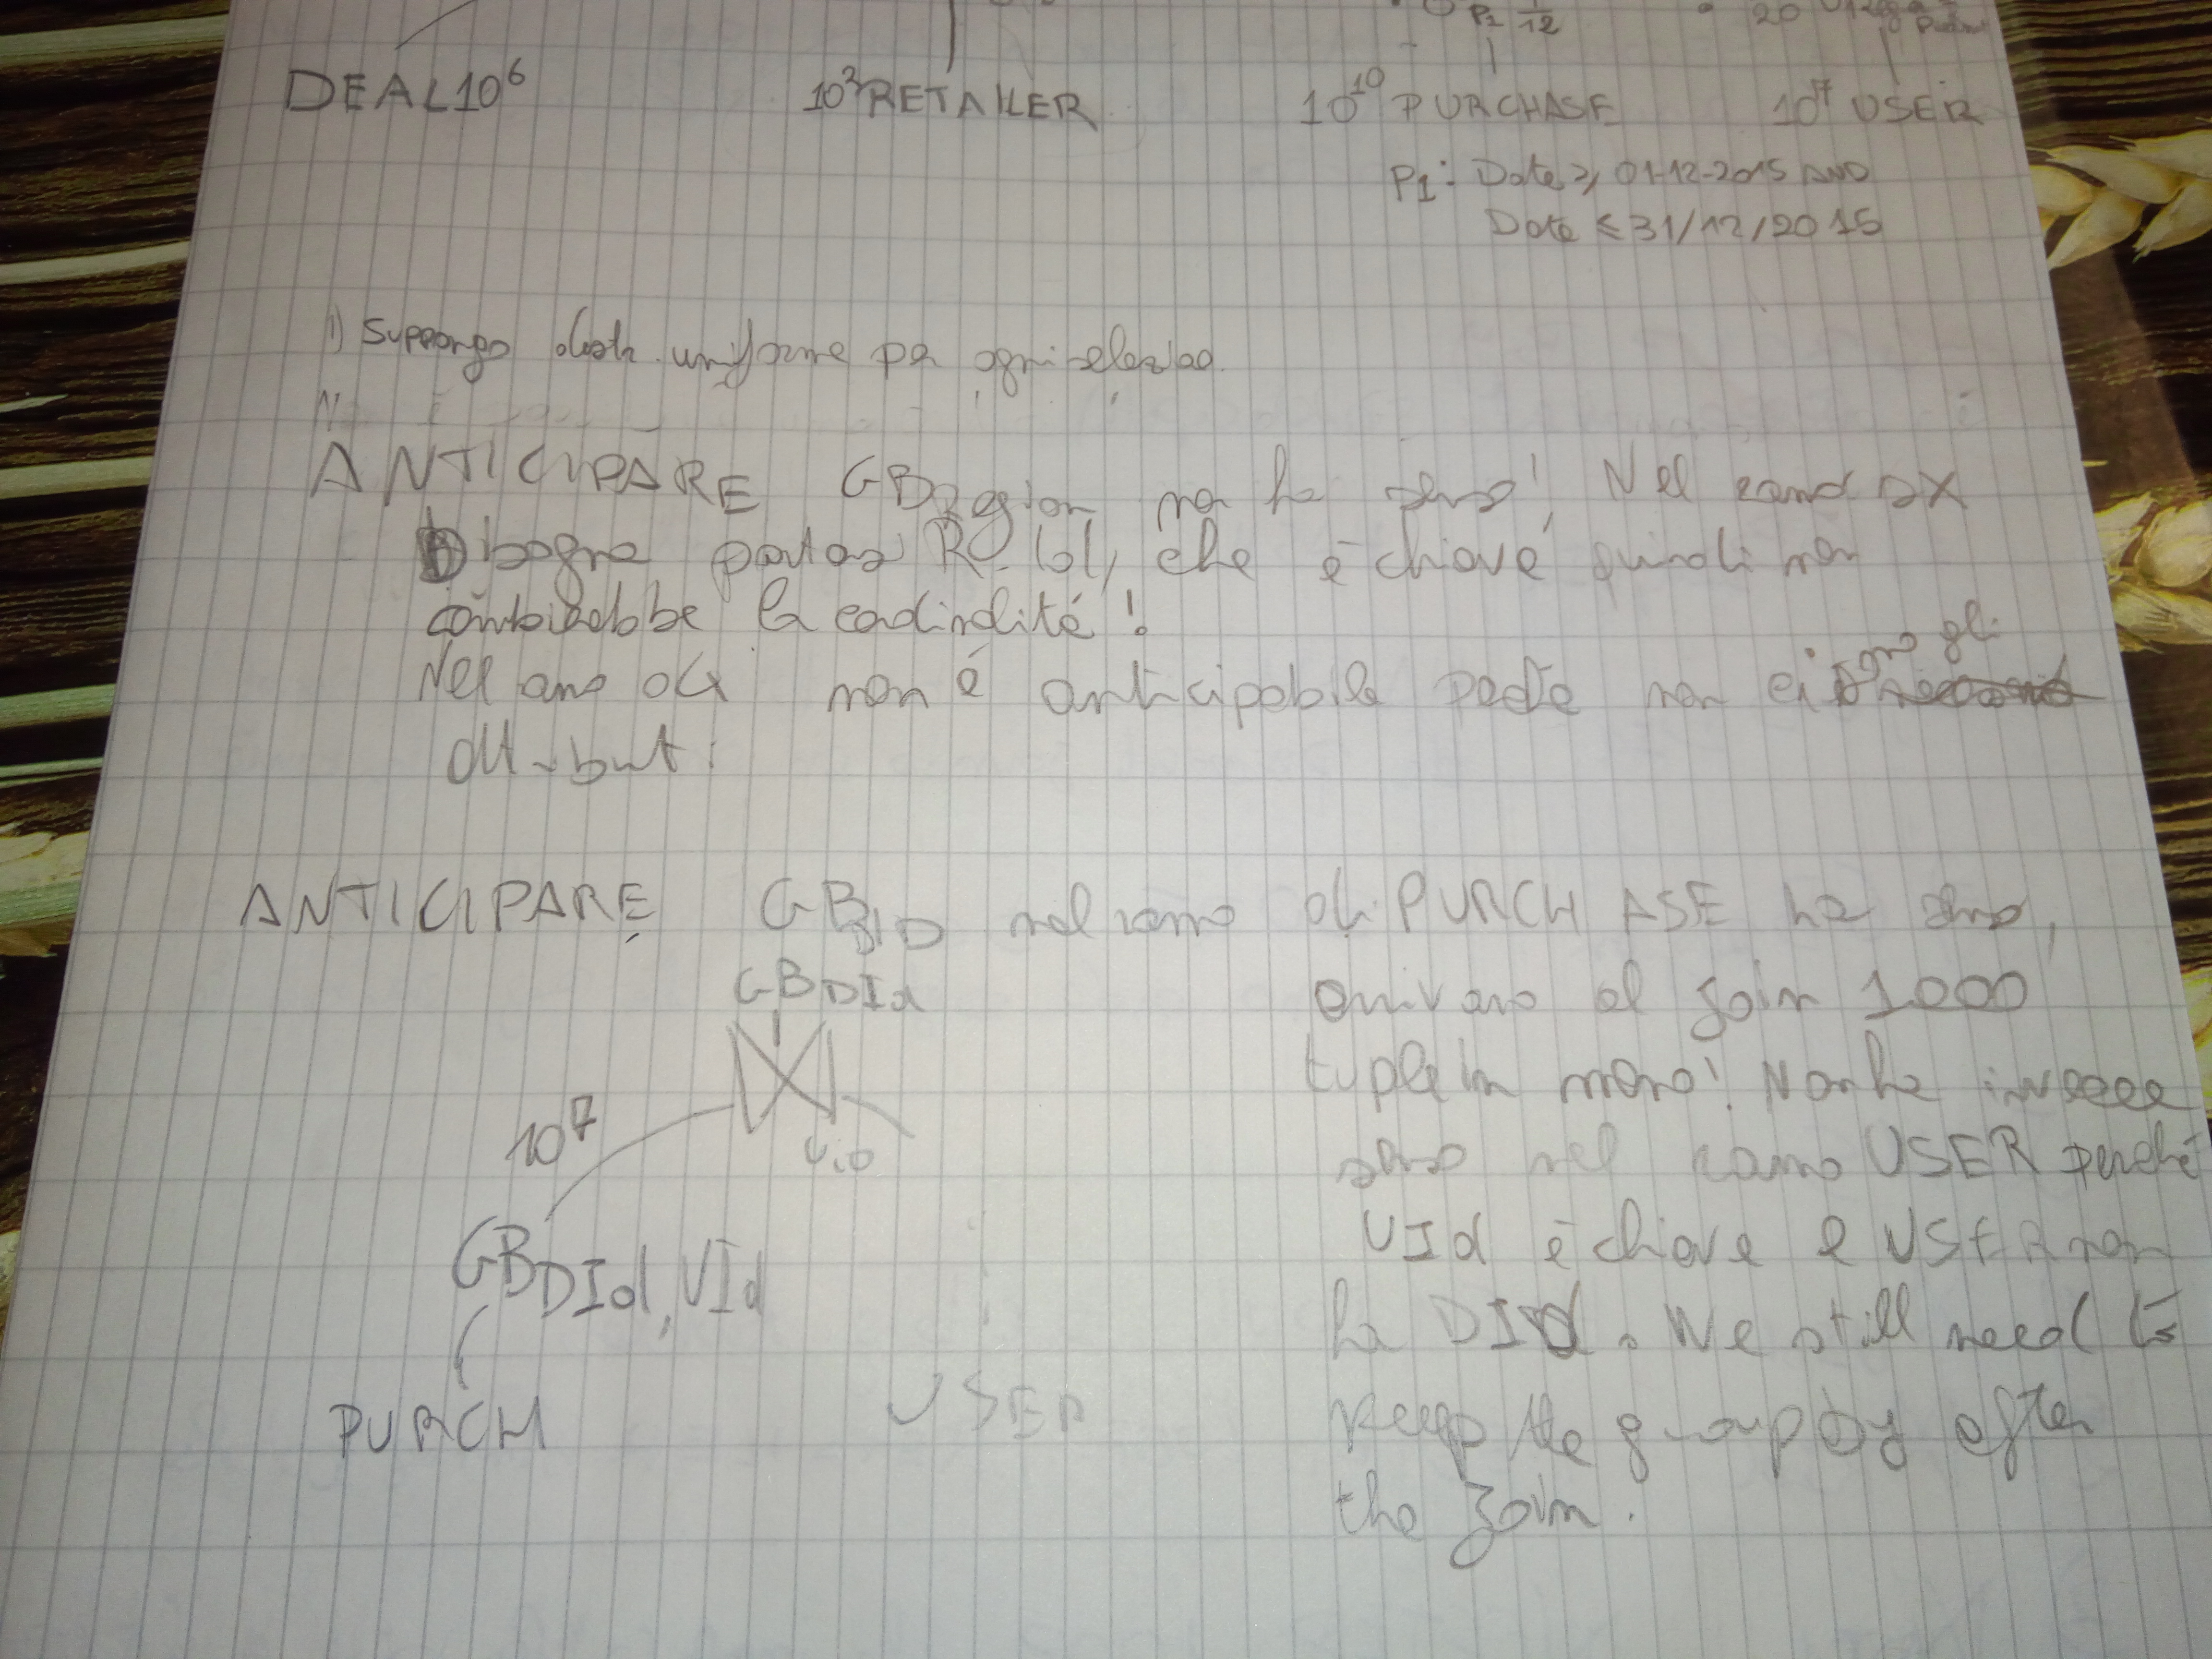 P1 1/12
20
DEAL 10^6 10^3 RETAILER 10^10 PURCHASE 10^7 USER
P1: Date ≥ 01-12-2015 AND
Date ≤ 31/12/2015
1) Suppongo distr. uniforme per ogni selezione.
ANTICIPARE GB Region non ha senso! Nel ramo sx
bisogna portare R.Id, che è chiave quindi non
cambierebbe la cardinalità!
Nel ramo dx non è anticipabile perché non ci sono gli
attributi
ANTICIPARE GB DID nel ramo di PURCHASE ha senso,
GB DId arrivano al join 1000
tuple in meno! Non ha invece
10^7 UID senso nel ramo USER perché
GB DId, UId UId è chiave e USER non
ha DId. We still need to
PURCH USER keep the group by after
the join.